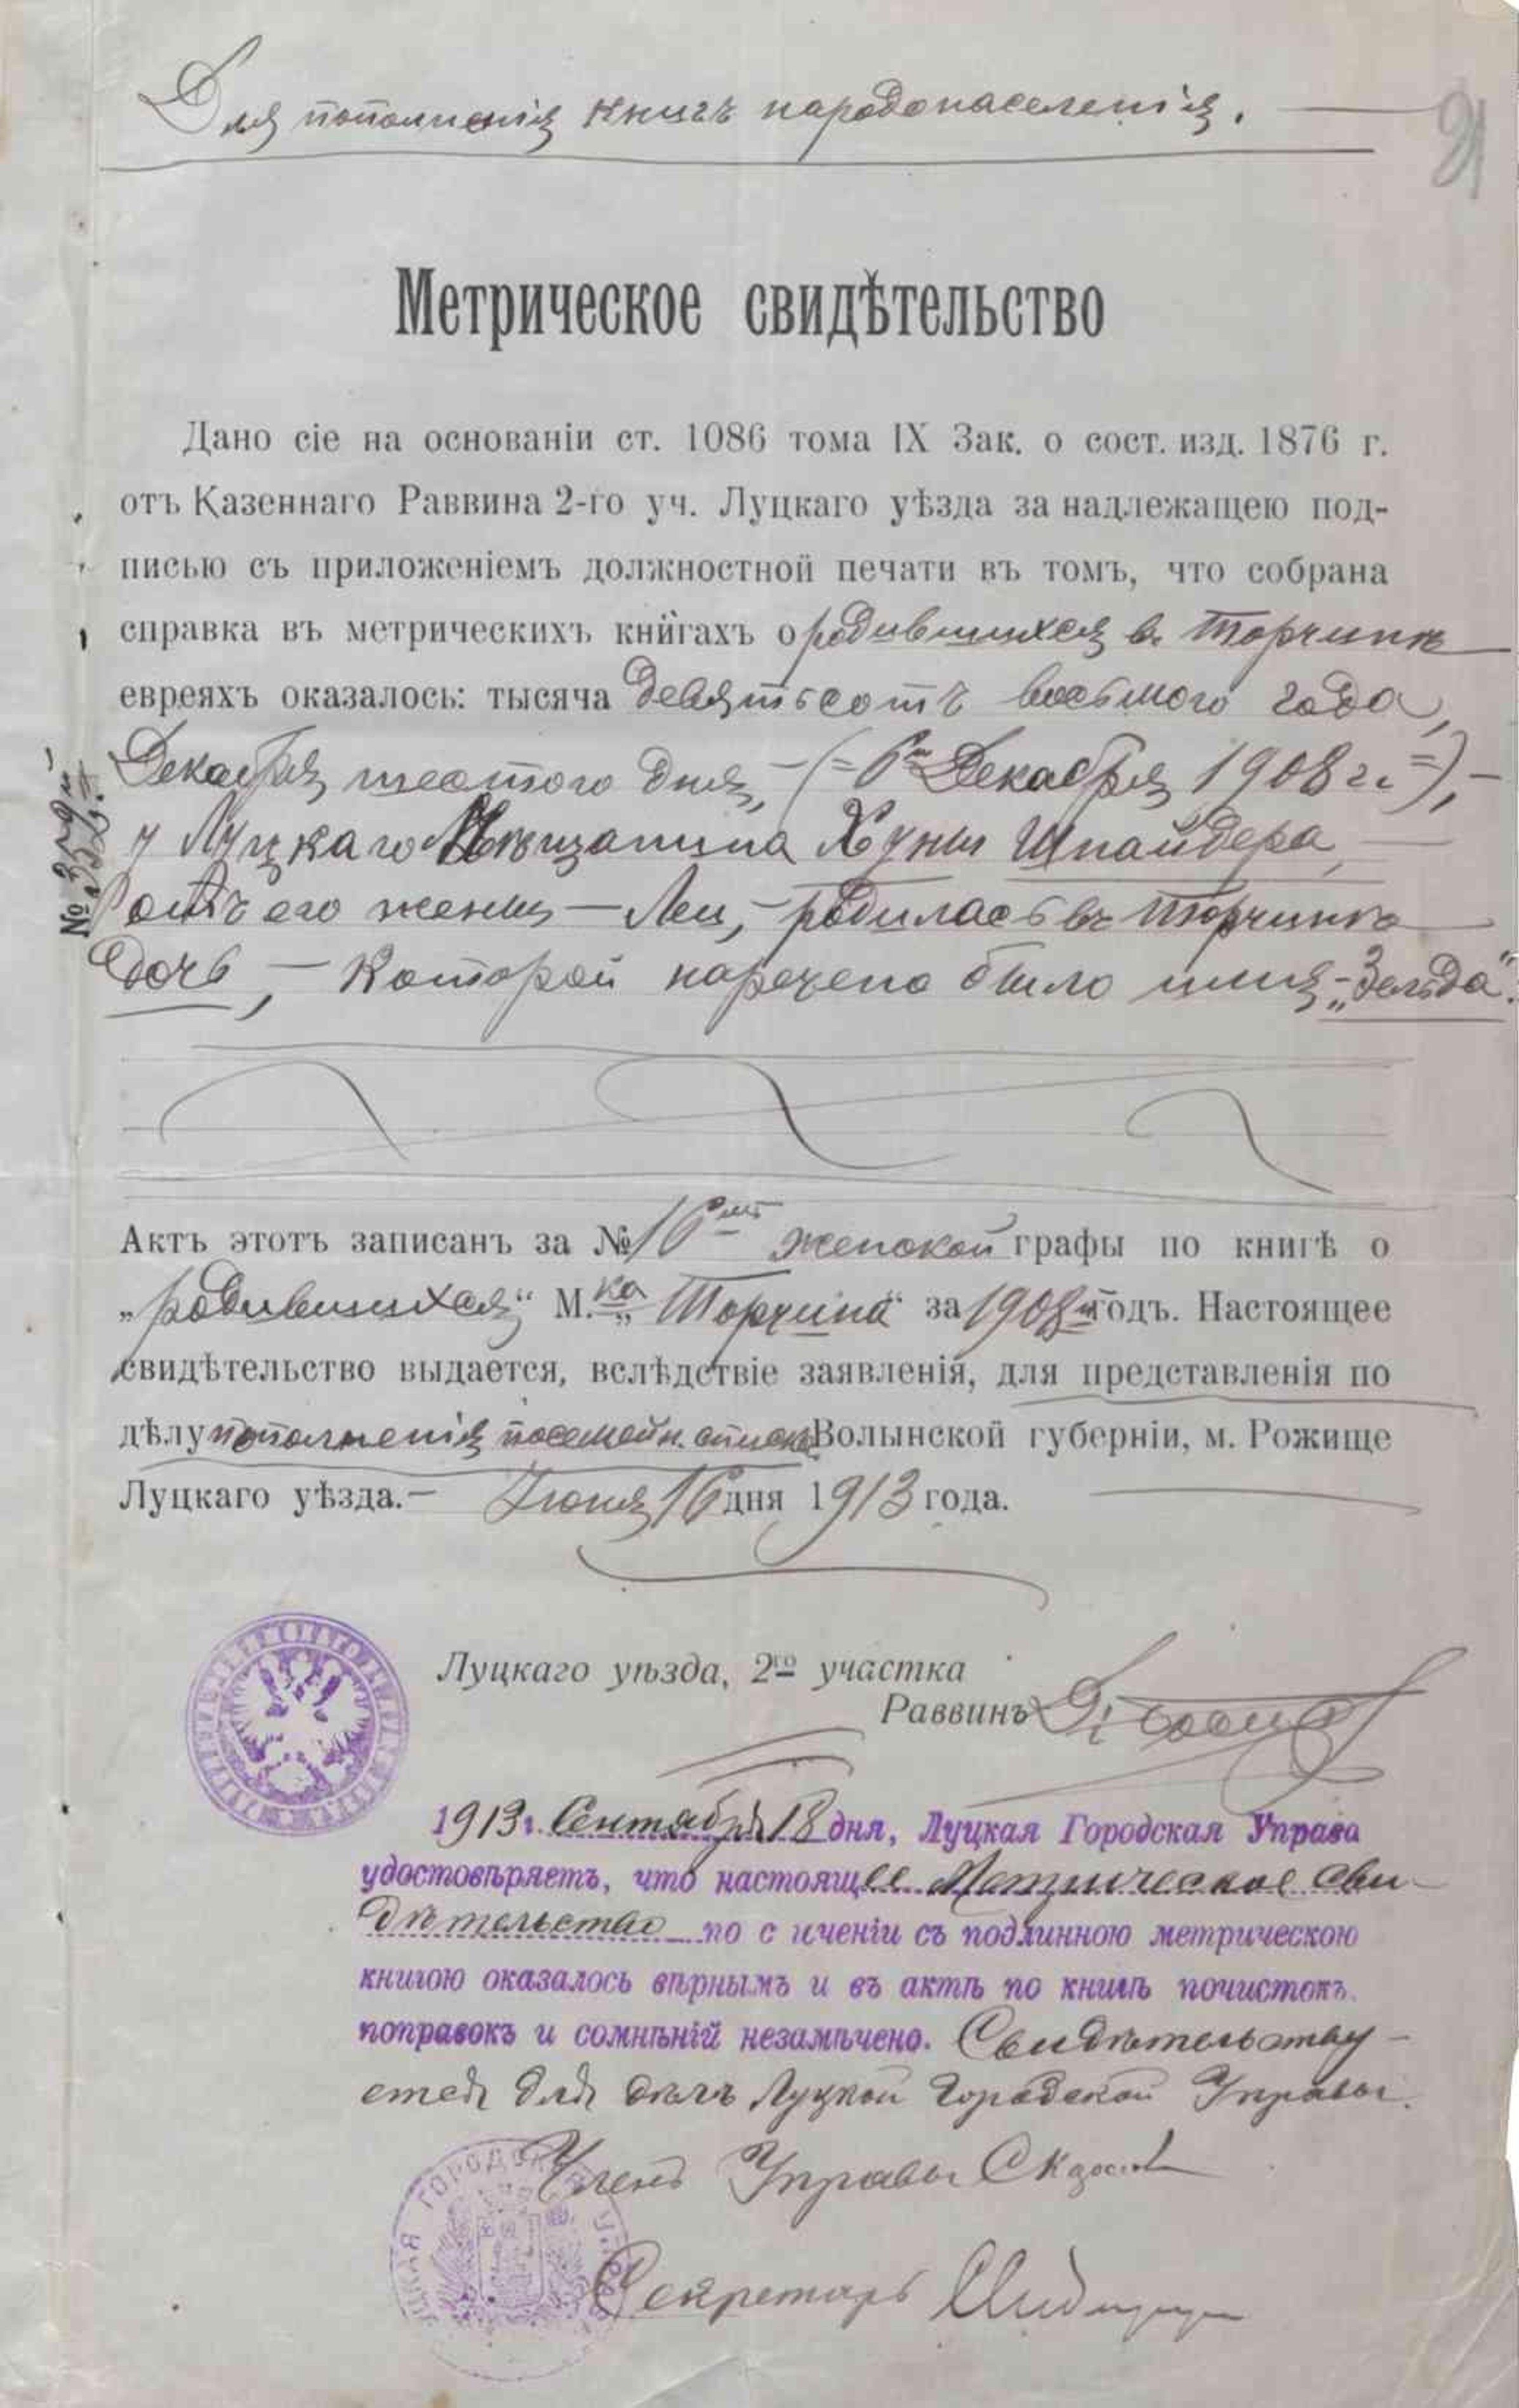 Для пополненія книгъ народонаселенія.
21
Метрическое свидѣтельство
Дано сіе на основаніи ст. 1086 тома IX Зак. о сост. изд. 1876 г.
отъ Казеннаго Раввина 2-го уч. Луцкаго уѣзда за надлежащею под-
писью съ приложеніемъ должностной печати въ томъ, что собрана
справка въ метрическихъ книгахъ о родившихся въ Торчинѣ
евреяхъ оказалось: тысяча девятьсотъ восьмого года,
Декабря шестого дня, – (= 6го Декабря 1908 г. =), –
у Луцкаго Мѣщанина Хуны Шпайдера, —
отъ его жены — Леи, – родилась въ Торчинѣ
дочь, — которой наречено было имя – „Зельда“.
№ 352.
Актъ этотъ записанъ за № 16мъ женской графы по книгѣ о
„родившихся“ М.ка „Торчина“ за 1908й годъ. Настоящее
свидѣтельство выдается, вслѣдствіе заявленія, для представленія по
дѣлу пополненія посемейн. списка Волынской губерніи, м. Рожище
Луцкаго уѣзда.— Іюня 16 дня 1913 года.
Луцкаго уѣзда, 2го участка
Раввинъ
1913г. Сентября 18 дня, Луцкая Городская Управа
удостовѣряетъ, что настоящее Метрическое сви-
дѣтельство по с иченіи съ подлинною метрическою
книгою оказалось вѣрнымъ и въ актѣ по книгѣ почистокъ
поправокъ и сомнѣній незамѣчено. Свидѣтельству-
ется для дѣлъ Луцкой Городской Управы.
Членъ Управы
Секретарь